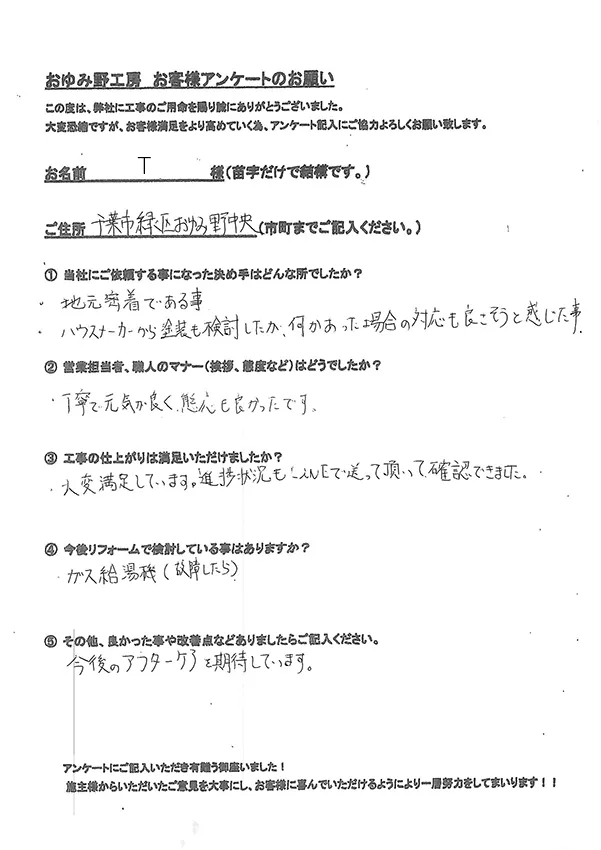 おゆみ野工房 お客様アンケートのお願い
この度は、弊社に工事のご用命を賜り誠にありがとうございました。
大変恐縮ですが、お客様満足をより高めていく為、アンケート記入にご協力よろしくお願い致します。
お名前 T 様(苗字だけで結構です。)
ご住所 千葉市緑区おゆみ野中央(市町までご記入ください。)
① 当社にご依頼する事になった決め手はどんな所でしたか?
・地元密着である事
・ハウスメーカーから塗装も検討したが、何かあった場合の対応も良さそうと感じた事
② 営業担当者、職人のマナー(挨拶、態度など)はどうでしたか?
・丁寧で元気が良く、態度も良かったです。
③ 工事の仕上がりは満足いただけましたか?
・大変満足しています。進捗状況もLINEで送って頂いて確認できました。
④ 今後リフォームで検討している事はありますか?
ガス給湯機(故障したら)
⑤ その他、良かった事や改善点などありましたらご記入ください。
今後のアフターケアを期待しています。
アンケートにご記入いただき有難う御座いました!
施主様からいただいたご意見を大事にし、お客様に喜んでいただけるようにより一層努力をしてまいります!!